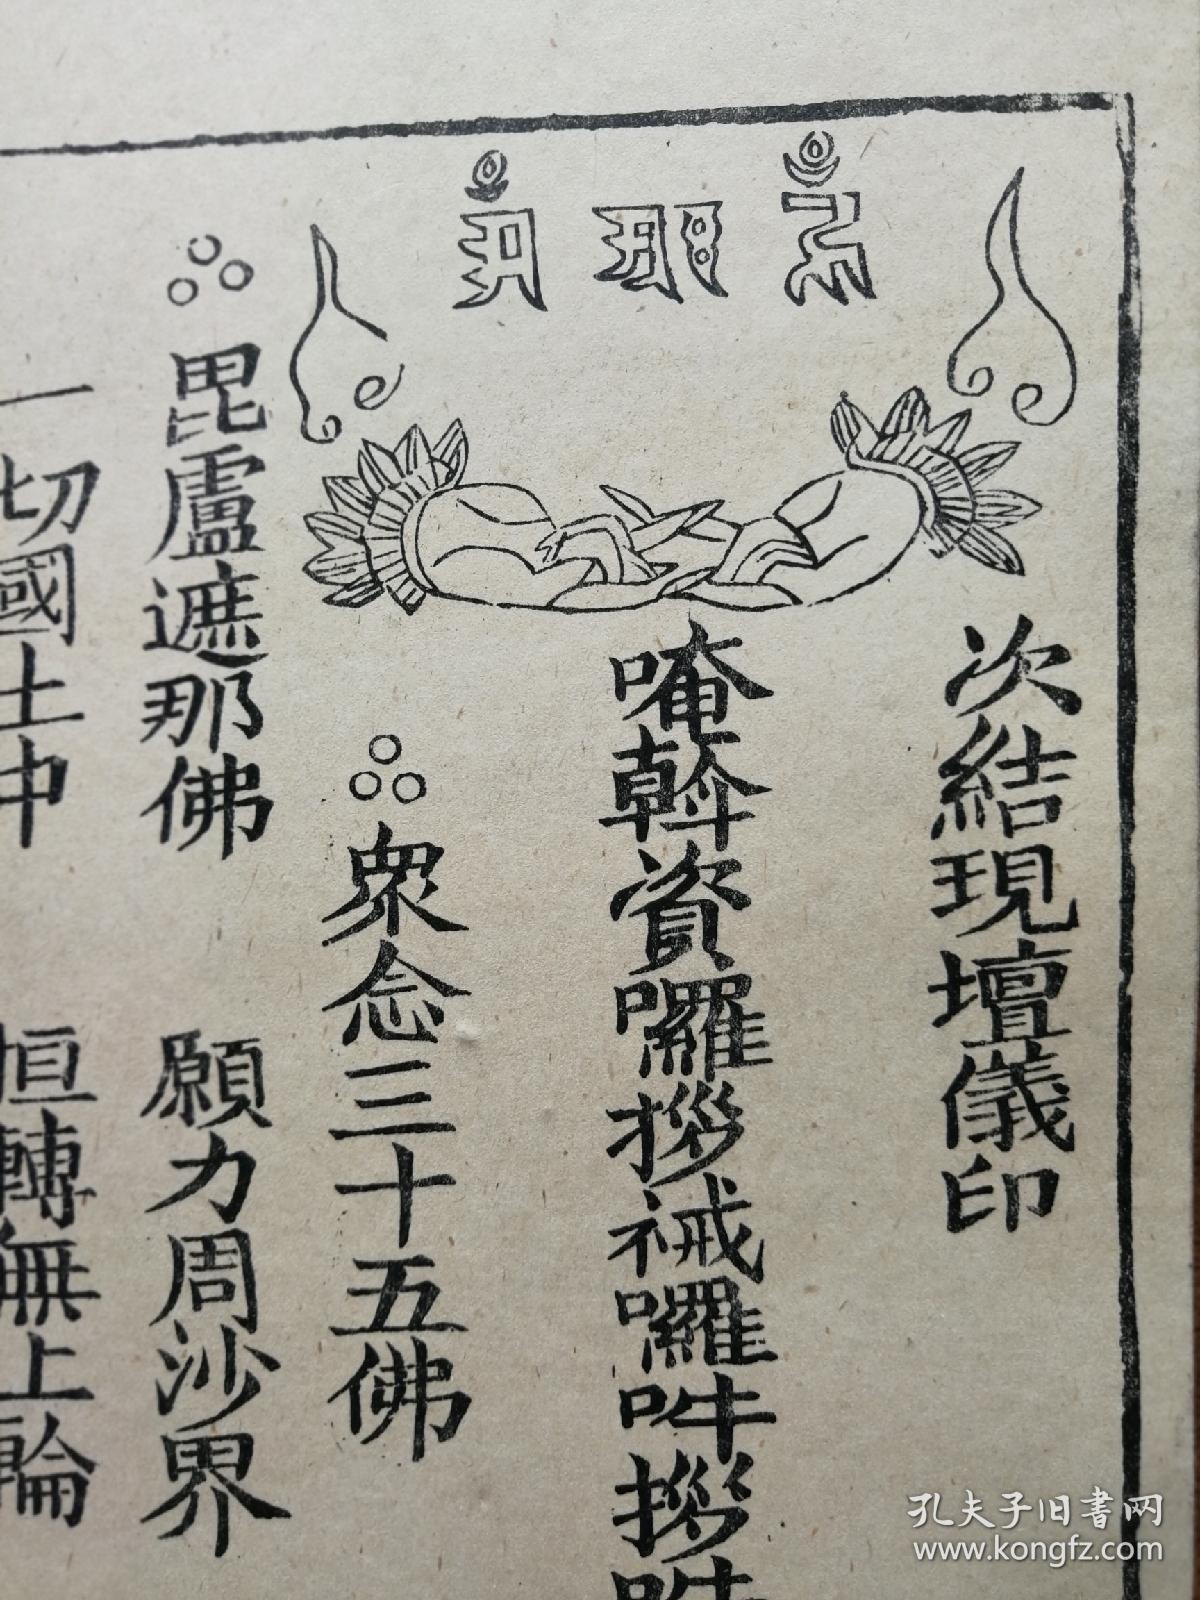 次結現壇儀印
唵斡資囉拶禡囉吽拶
衆念三十五佛
毘盧遮那佛　願力周沙界
一切國土中　恒轉無上輪
孔夫子旧書网
www.kongfz.com